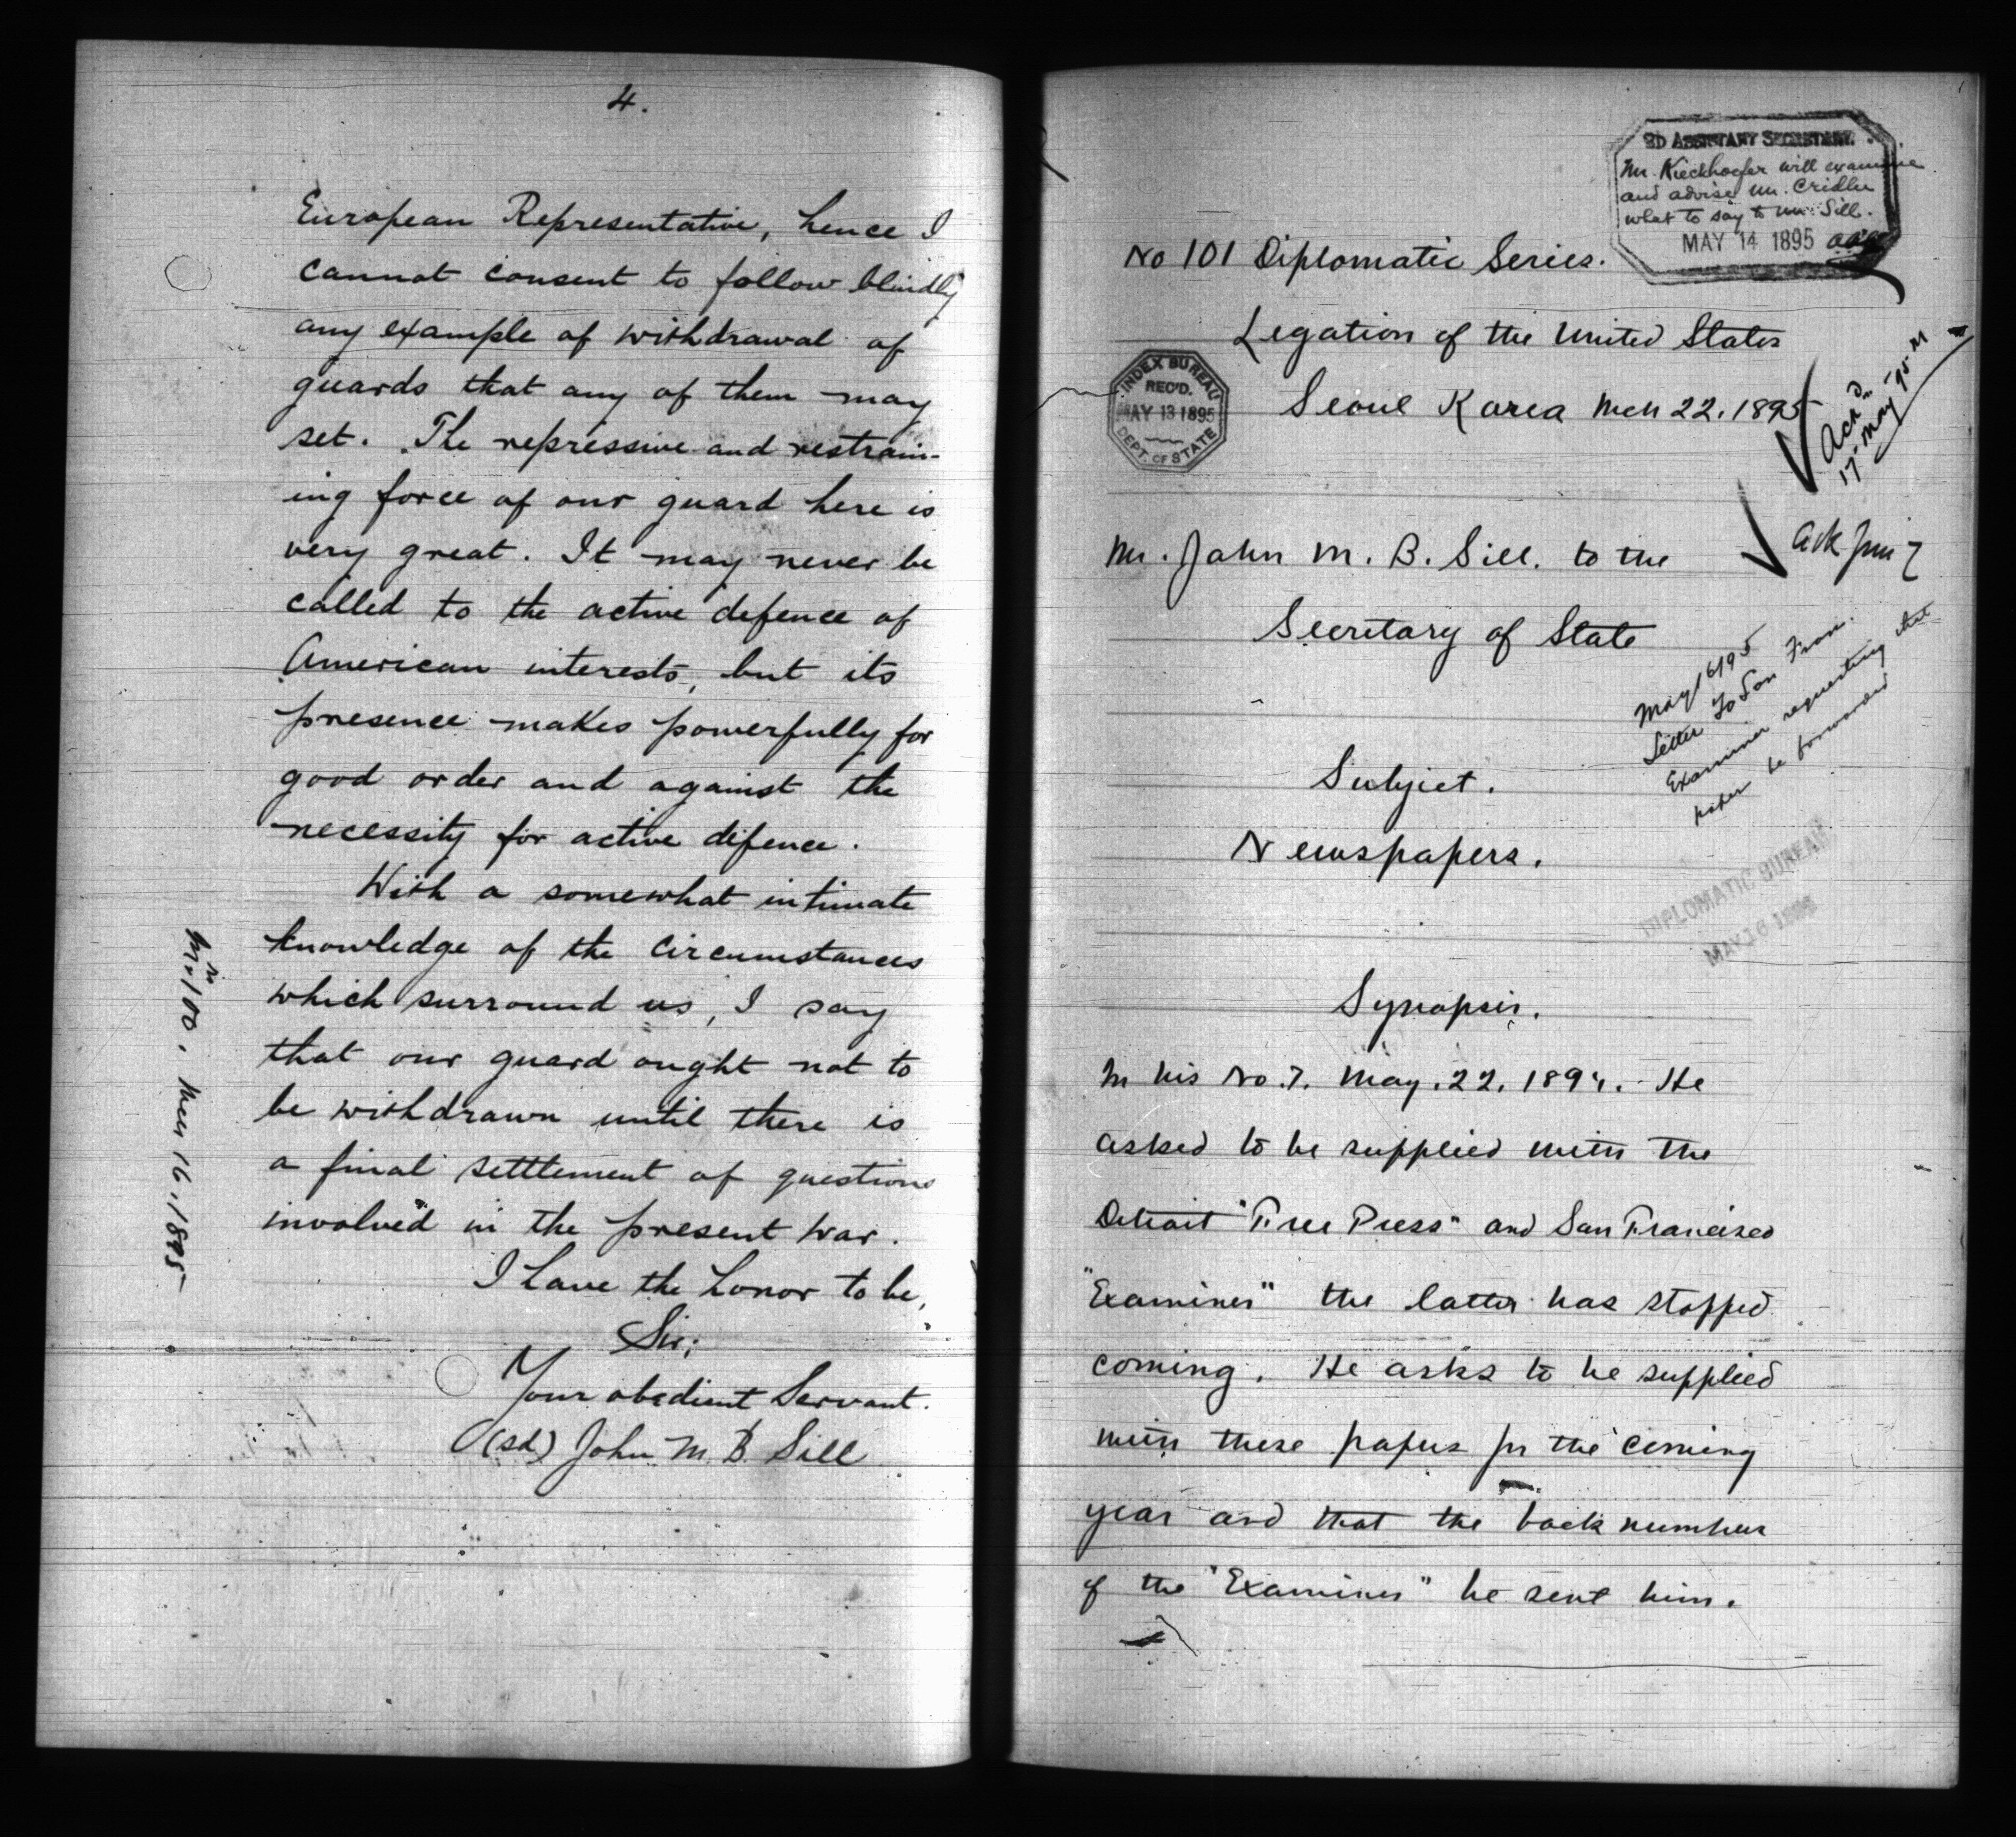 4.
European Representative, hence I
cannot consent to follow blindly
any example of withdrawal of
guards that any of them may
set. The repressive and restrain-
ing force of our guard here is
very great. It may never be
called to the active defence of
American interests, but its
presence makes powerfully for
good order and against the
necessity for active difence.
With a somewhat intimate
knowledge of the circumstances
which surround us, I say
that our guard ought not to
be withdrawn until there is
a final settlement of questions
involved in the present war.
I have the honor to be,
Sir;
Your obedient Servant.
(sd) John M. B. Sill
100, 16, 1895
3D ASSISTANT SECRETARY.
Mr. Kieckhoefer will examine
and advise Mr. Cridler
what to say to Mr. Sill.
MAY 14 1895
No 101 Diplomatic Series.
Legation of the United States
Seoul Korea Mch 22. 1895
INDEX BUREAU
REC'D.
MAY 13 1895
DEPT. OF STATE
Ackd
17 May '95
Mr. John M. B. Sill. to the
Secretary of State
Ack
May 16/95
Letter to San Fran.
Examiner requesting that
paper be forwarded
Subject.
Newspapers.
DIPLOMATIC BUREAU
MAY 16 1895
Synopsis.
In his No. 7. May. 22. 1894. He
asked to be supplied with the
Detroit "Free Press" and San Francisco
"Examiner" the latter has stopped
coming. He asks to be supplied
with these papers for the coming
year and that the back numbers
of the "Examiner" be sent him.